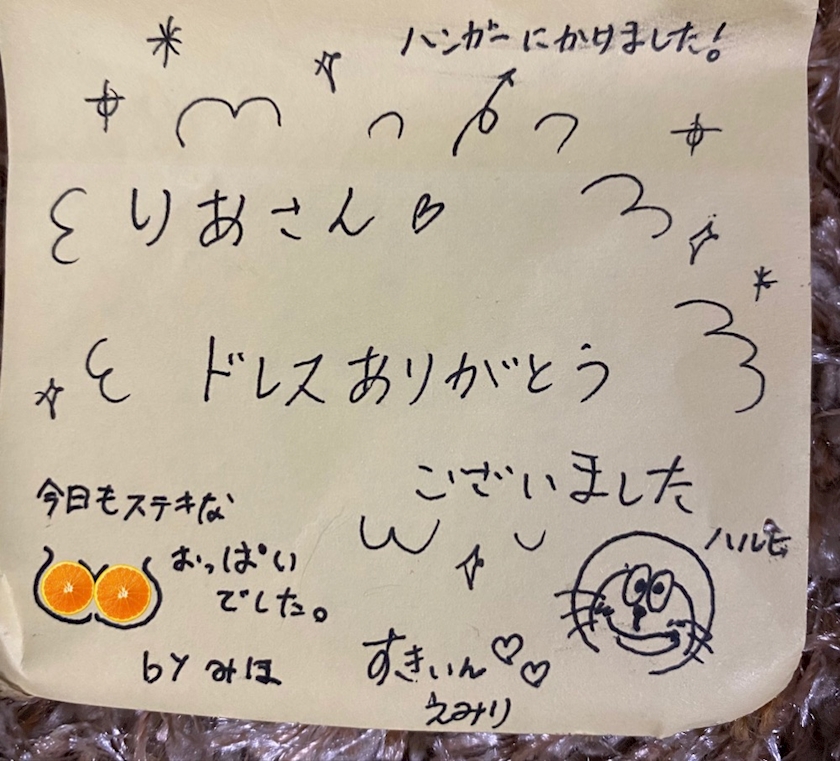 ハンガーにかけました!
りあさん♡
ドレスありがとう
ございました
今日もステキな
おっぱい
でした。
by みほ
ハルヒ
すきぃん♡♡
えみり